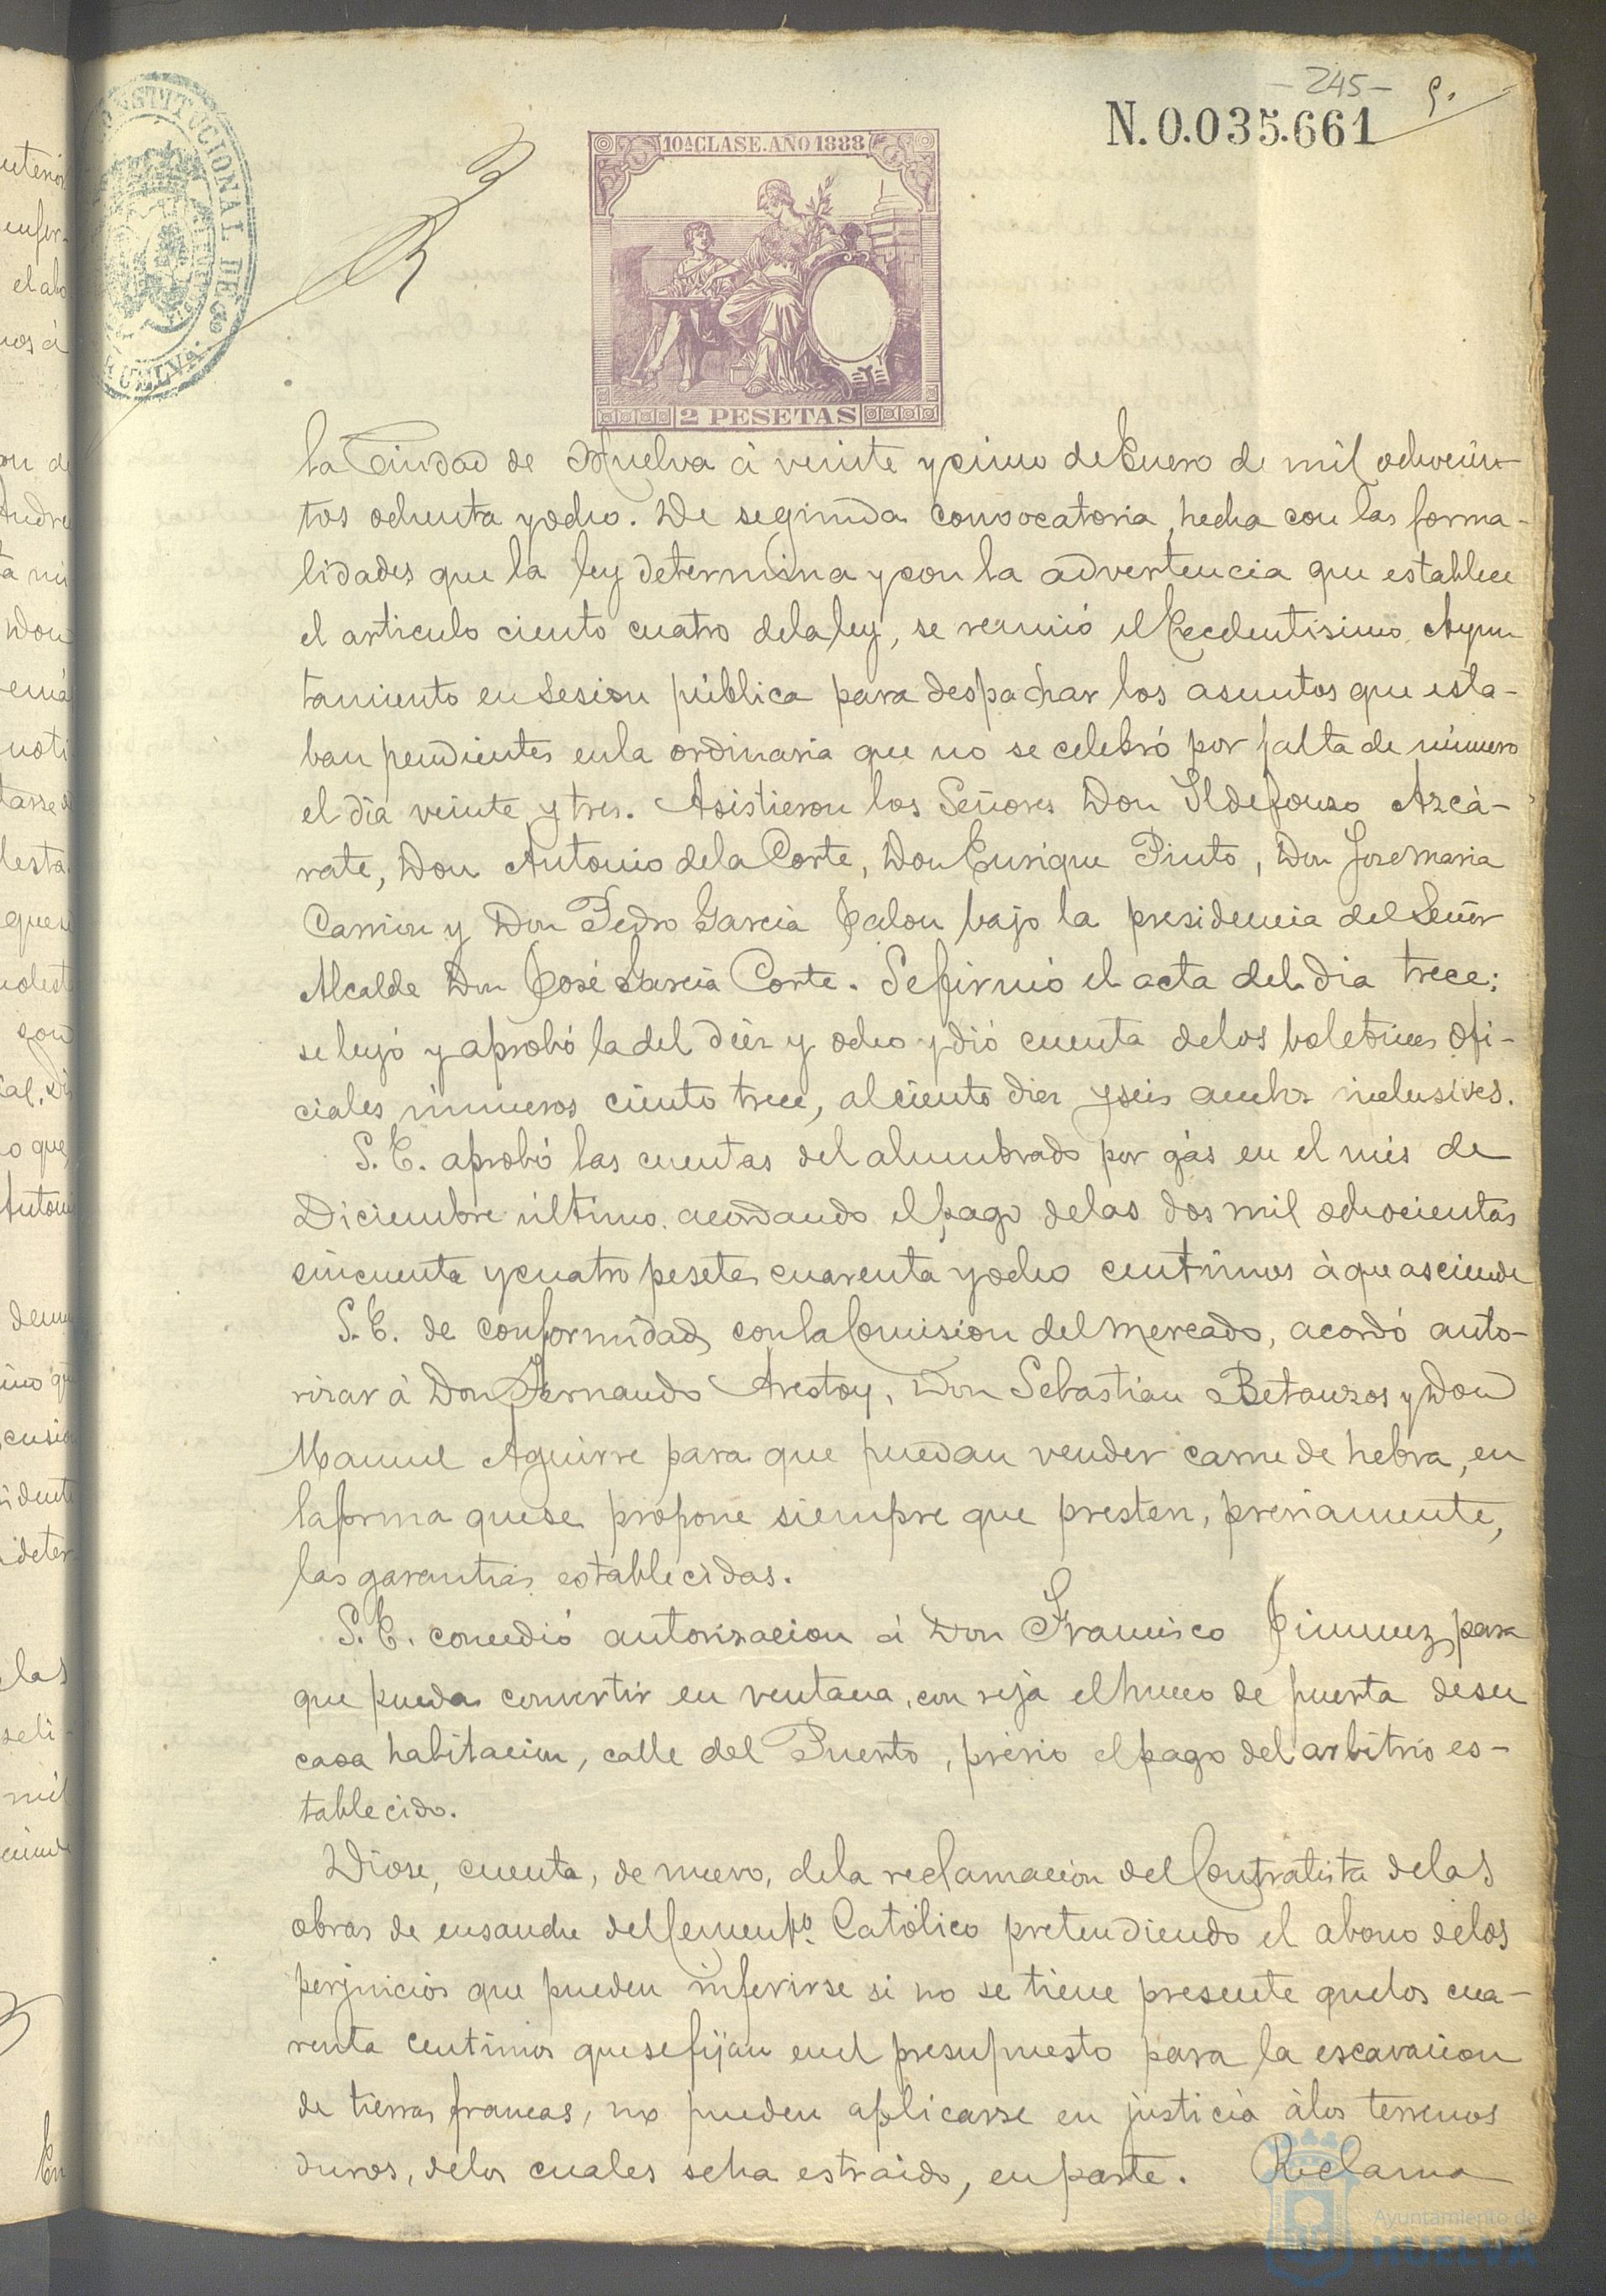 - 245 -
N. 0.035.661
10ª CLASE. AÑO 1888
2 PESETAS
CONSTITUCIONAL DE
HUELVA.
la Ciudad de Huelva á veinte y cinco de Enero de mil ochocien-
tos ochenta y ocho. De segunda convocatoria, hecha con las forma-
lidades que la ley determina y con la advertencia que establece
el articulo ciento cuatro de la ley, se reunió el Excelentisimo Ayun
tamiento en Sesion pública para despachar los asuntos que esta-
ban pendientes en la ordinaria que no se celebró por falta de número
el dia veinte y tres. Asistieron los Señores Don Ildefonso Azcá-
rate, Don Antonio de la Corte, Don Enrique Pinto, Don Jose Maria
Carrion y Don Pedro Garcia Jalon bajo la presidencia del Señor
Alcalde Don José Garcia Corte. Se firmó el acta del dia trece;
se leyó y aprobó la del diez y ocho y dió cuenta de los boletines ofi-
ciales números ciento trece, al ciento diez y seis ambos inclusives.
S. E. aprobó las cuentas del alumbrado por gás en el més de
Diciembre último. acordando el pago de las dos mil ochocientas
cincuenta y cuatro pesetas cuarenta y ocho centimos à que asciende
S. E. de conformidad con la Comision del Mercado, acordó auto-
rizar á Don Fernando Arestoy, Don Sebastian Betanzos y Don
Manuel Aguirre para que puedan vender carne de hebra, en
la forma que se propone siempre que presten, previamente,
las garantias establecidas.
S. E. concedió autorizacion á Don Francisco Jimenez para
que pueda convertir en ventana, con reja el hueco de puerta de su
casa habitacion, calle del Puerto, prévio el pago del arbitrio es-
tablecido.
Diose, cuenta, de nuevo, de la reclamacion del Contratista de las
obras de ensanche del Cementº. Católico pretendiendo el abono de los
perjuicios que pueden inferirse si no se tiene presente que los cua-
renta centimos que se fijan en el presupuesto para la escavacion
de tierras francas, no pueden aplicarse en justicia à los terrenos
duros, de los cuales se ha estraido, en parte. Reclama
Ayuntamiento de
HUELVA